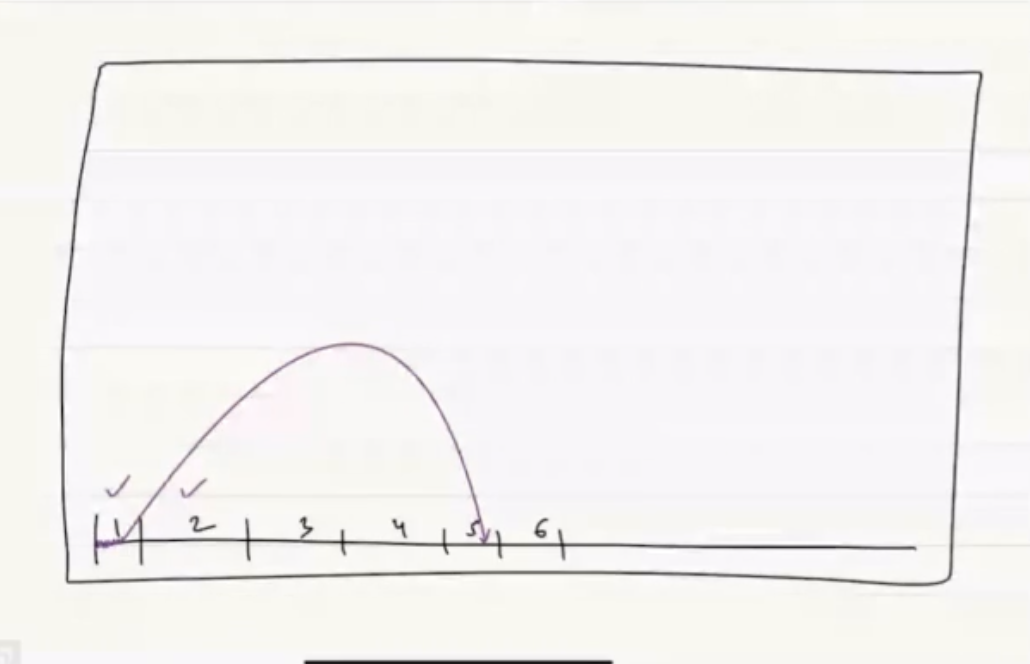 ✓ ✓
1 2 3 4 5 6